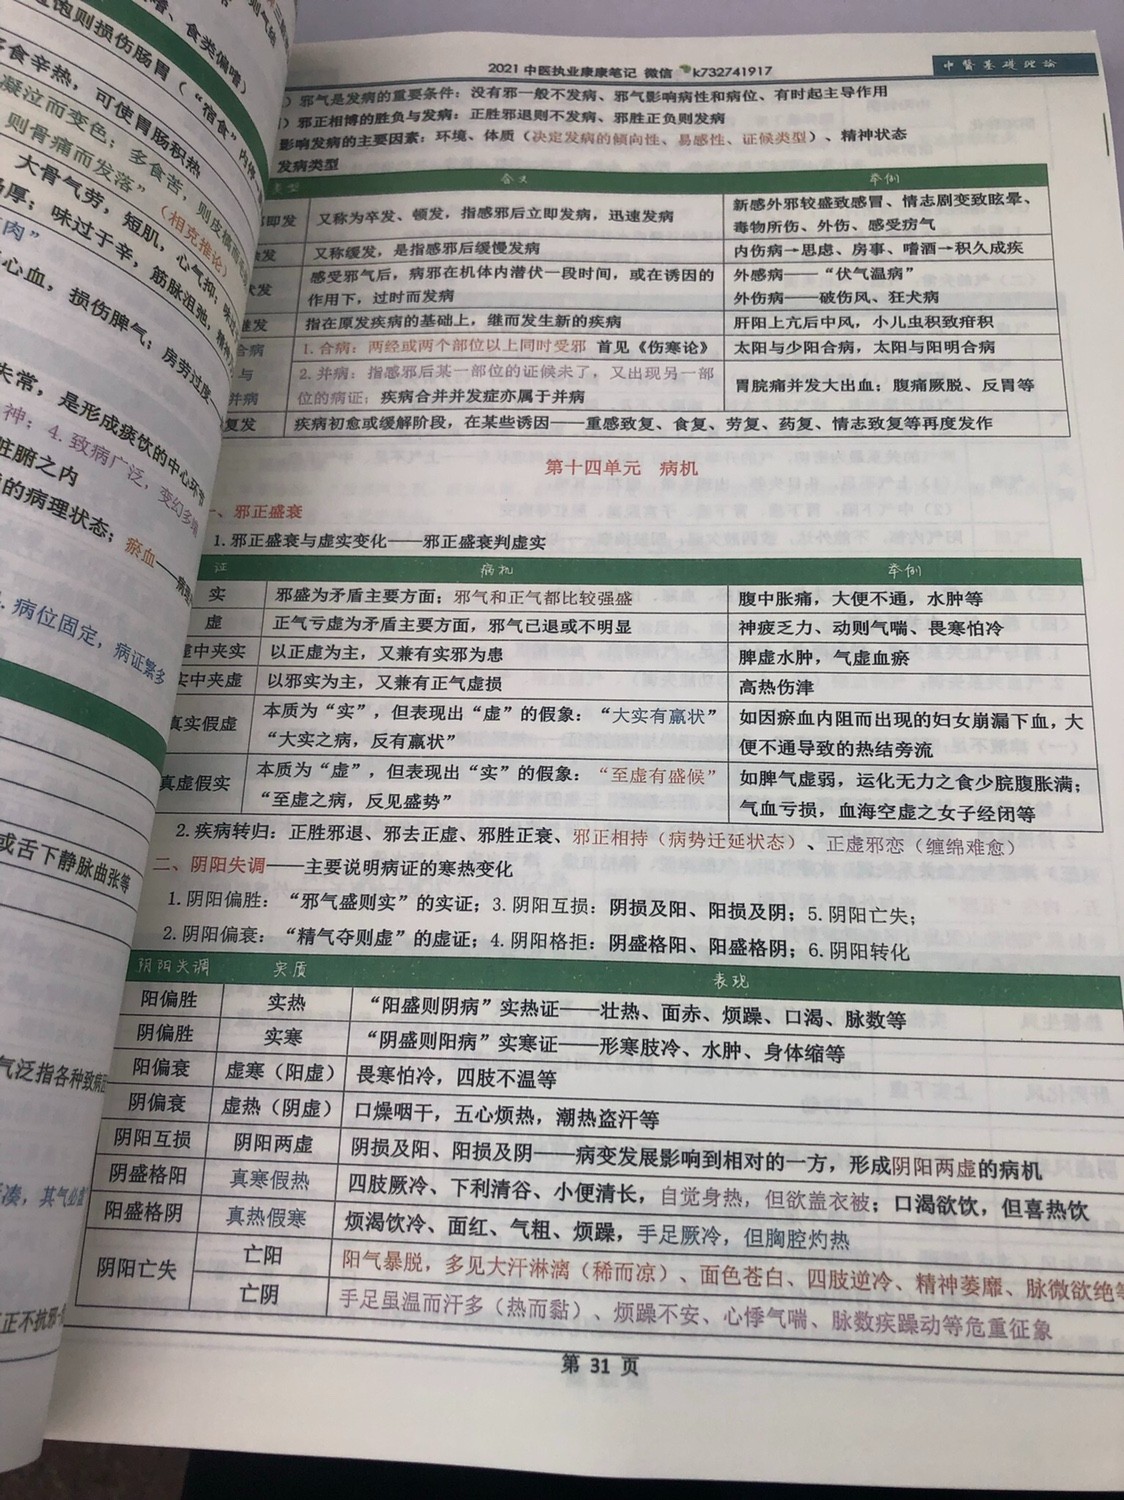 2021 中医执业康康笔记 微信 k732741917
中醫基礎理論
）邪气是发病的重要条件：没有邪一般不发病、邪气影响病性和病位、有时起主导作用
）邪正相搏的胜负与发病：正胜邪退则不发病、邪胜正负则发病
影响发病的主要因素：环境、体质（决定发病的倾向性、易感性、证候类型）、精神状态
发病类型
类型 含义 举例
即发 又称为卒发、顿发，指感邪后立即发病，迅速发病 新感外邪较盛致感冒、情志剧变致眩晕、
毒物所伤、外伤、感受疠气
发 又称缓发，是指感邪后缓慢发病 内伤病→思虑、房事、嗜酒→积久成疾
发 感受邪气后，病邪在机体内潜伏一段时间，或在诱因的 外感病——“伏气温病”
作用下，过时而发病 外伤病——破伤风、狂犬病
继发 指在原发疾病的基础上，继而发生新的疾病 肝阳上亢后中风，小儿虫积致疳积
合病 1.合病：两经或两个部位以上同时受邪 首见《伤寒论》 太阳与少阳合病，太阳与阳明合病
与 2.并病：指感邪后某一部位的证候未了，又出现另一部
并病 位的病证；疾病合并并发症亦属于并病 胃脘痛并发大出血；腹痛厥脱、反胃等
复发 疾病初愈或缓解阶段，在某些诱因——重感致复、食复、劳复、药复、情志致复等再度发作
第十四单元 病机
一、邪正盛衰
1.邪正盛衰与虚实变化——邪正盛衰判虚实
证 病机 举例
实 邪盛为矛盾主要方面；邪气和正气都比较强盛 腹中胀痛，大便不通，水肿等
虚 正气亏虚为矛盾主要方面，邪气已退或不明显 神疲乏力、动则气喘、畏寒怕冷
虚中夹实 以正虚为主，又兼有实邪为患 脾虚水肿，气虚血瘀
实中夹虚 以邪实为主，又兼有正气虚损 高热伤津
真实假虚 本质为“实”，但表现出“虚”的假象：“大实有羸状” 如因瘀血内阻而出现的妇女崩漏下血，大
“大实之病，反有羸状” 便不通导致的热结旁流
真虚假实 本质为“虚”，但表现出“实”的假象：“至虚有盛候” 如脾气虚弱，运化无力之食少脘腹胀满；
“至虚之病，反见盛势” 气血亏损，血海空虚之女子经闭等
2.疾病转归：正胜邪退、邪去正虚、邪胜正衰、邪正相持（病势迁延状态）、正虚邪恋（缠绵难愈）
二、阴阳失调——主要说明病证的寒热变化
1.阴阳偏胜：“邪气盛则实”的实证；3.阴阳互损：阴损及阳、阳损及阴；5.阴阳亡失；
2.阴阳偏衰：“精气夺则虚”的虚证；4.阴阳格拒：阴盛格阳、阳盛格阴；6.阴阳转化
阴阳失调 实质 表现
阳偏胜 实热 “阳盛则阴病”实热证——壮热、面赤、烦躁、口渴、脉数等
阴偏胜 实寒 “阴盛则阳病”实寒证——形寒肢冷、水肿、身体缩等
阳偏衰 虚寒（阳虚） 畏寒怕冷，四肢不温等
阴偏衰 虚热（阴虚） 口燥咽干，五心烦热，潮热盗汗等
阴阳互损 阴阳两虚 阴损及阳、阳损及阴——病变发展影响到相对的一方，形成阴阳两虚的病机
阴盛格阳 真寒假热 四肢厥冷、下利清谷、小便清长，自觉身热，但欲盖衣被；口渴欲饮，但喜热饮
阳盛格阴 真热假寒 烦渴饮冷、面红、气粗、烦躁，手足厥冷，但胸腔灼热
阴阳亡失 亡阳 阳气暴脱，多见大汗淋漓（稀而凉）、面色苍白、四肢逆冷、精神萎靡、脉微欲绝等
亡阴 手足虽温而汗多（热而黏）、烦躁不安、心悸气喘、脉数疾躁动等危重征象
第 31 页
饱则损伤肠胃（“宿食”
、食类偏嗜）
食辛热，可使胃肠积热
凝泣而变色；多食苦，则皮槁
则骨痛而发落”（相克推论）
大骨气劳，短肌，心气抑；味
厚；味过于辛，筋脉沮弛，精神
肉”
心血，损伤脾气；房劳过度
失常，是形成痰饮的中心环节
神；4.致病广泛，变幻多端
脏腑之内
的病理状态；瘀血
病位固定，病证繁多
或舌下静脉曲张等
气泛指各种致病因
凑，其气必虚
正不抗邪